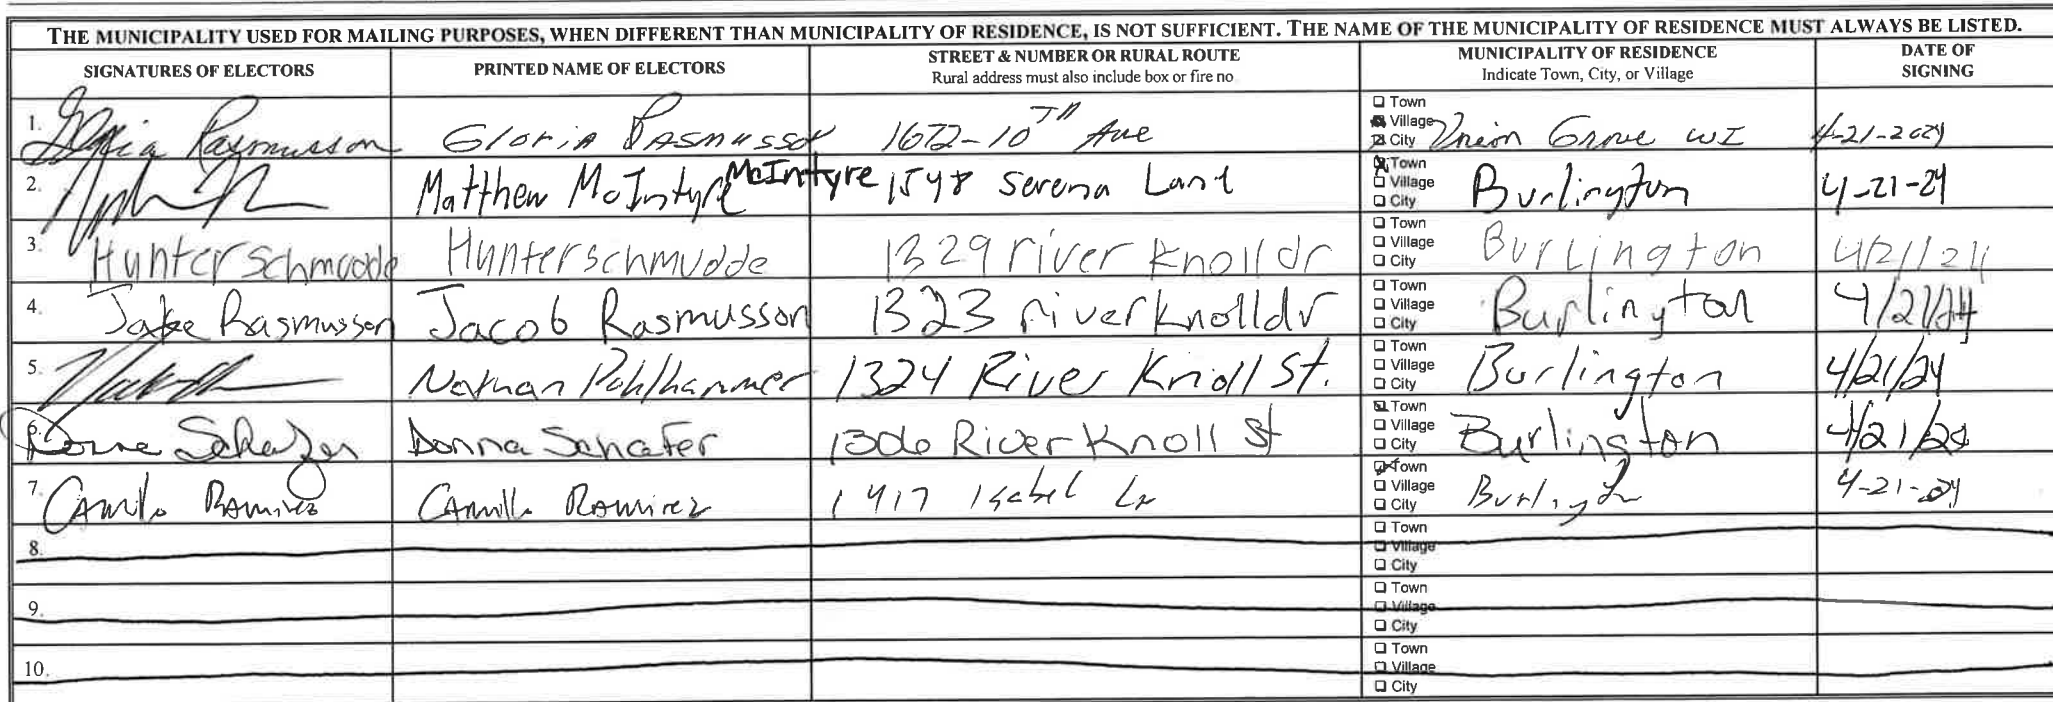 THE MUNICIPALITY USED FOR MAILING PURPOSES, WHEN DIFFERENT THAN MUNICIPALITY OF RESIDENCE, IS NOT SUFFICIENT. THE NAME OF THE MUNICIPALITY OF RESIDENCE MUST ALWAYS BE LISTED.
SIGNATURES OF ELECTORS
PRINTED NAME OF ELECTORS
STREET & NUMBER OR RURAL ROUTE
Rural address must also include box or fire no
MUNICIPALITY OF RESIDENCE
Indicate Town, City, or Village
DATE OF
SIGNING
1. Gloria Rasmusson Gloria Rasmusson 1672-10TH Ave
Town
Village
City
Union Grove WI 4-21-2024
2. Matthew McIntyre McIntyre 1548 Serena Lane
Town
Village
City
Burlington 4-21-24
3. Hunter schmudde Hunter schmudde 1329 river knoll dr
Town
Village
City
Burlington 4/21/24
4. Jake Rasmusson Jacob Rasmusson 1323 river knoll dr
Town
Village
City
Burlington 4/21/24
5. Nathan Pohlhammer 1324 River Knoll St.
Town
Village
City
Burlington 4/21/24
6. Donna Schafer Donna Schafer 1306 River Knoll St
Town
Village
City
Burlington 4/21/24
7. Camilo Ramirez Camilo Ramirez 1417 Isabel Ln
Town
Village
City
Burlington 4-21-24
8.
Town
Village
City
9.
Town
Village
City
10.
Town
Village
City